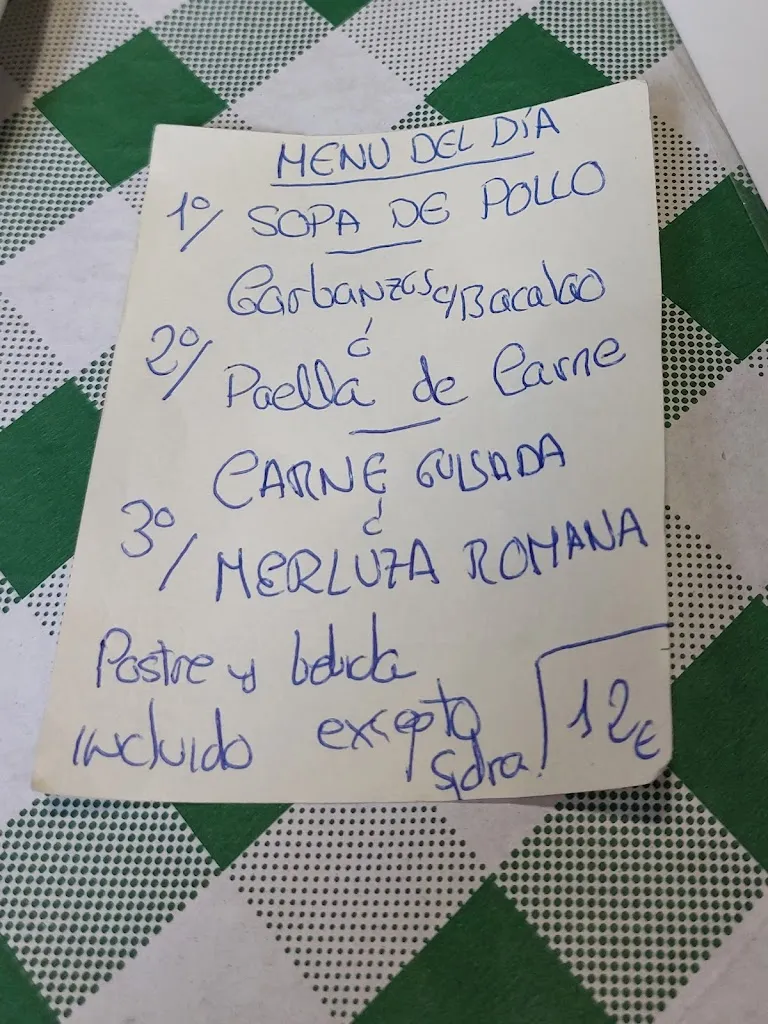 MENU DEL DÍA
1º/ SOPA DE POLLO
Garbanzos c/Bacalao
ó
2º/ Paella de Carne
CARNE GUISADA
ó
3º/ MERLUZA ROMANA
Postre y bebida
incluido excepto sidra. 12€